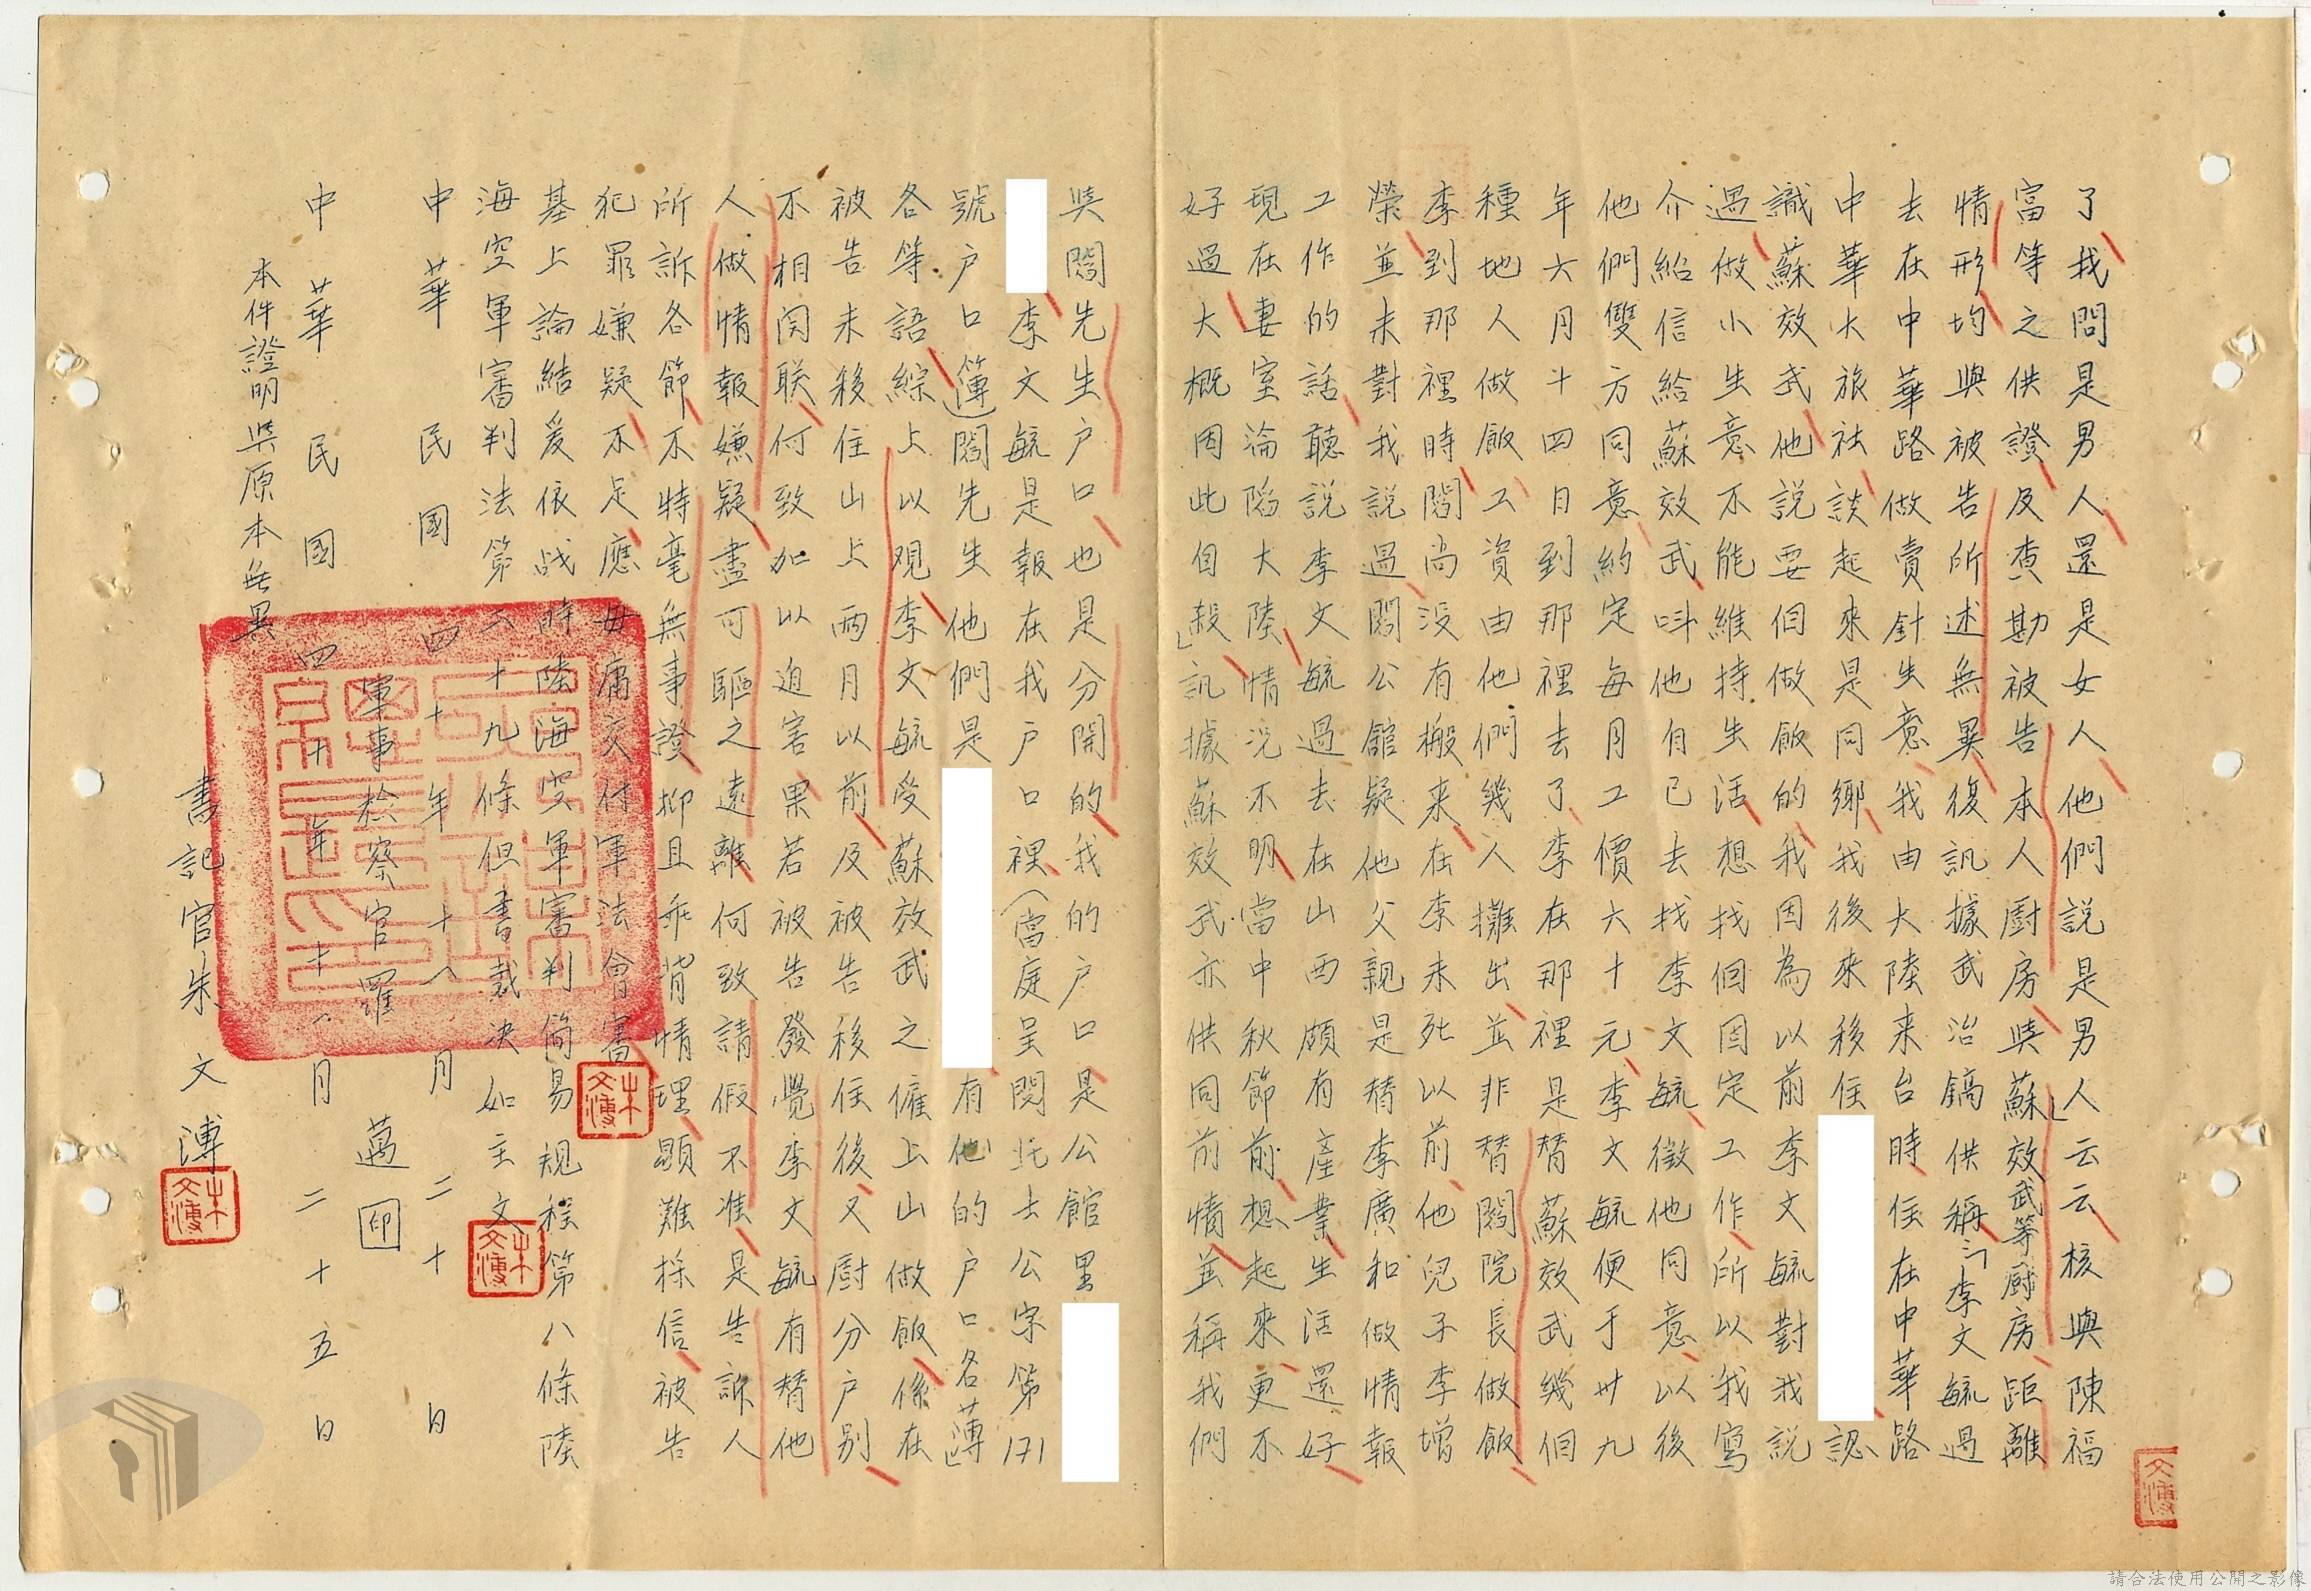 了我問是男人還是女人他們説是男人」云云核與陳福
富等之供證及查勘被告本人廚房與蘇效武等廚房距離
情形均與被告所述無異復訊據武治鎬供稱:「李文毓過
去在中華路做賣針生意我由大陸来台時住在中華路
中華大旅社談起來是同鄉我後來移住 認
識蘇效武他說要個做飯的我因為以前李文毓對我説
過做小生意不能維持生活想找個固定工作所以我寫
介紹信給蘇效武叫他自已去找李文毓徵他同意以後
他們雙方同意約定每月工價六十元李文毓便于卅九
年六月十四日到那裡去了李在那裡是替蘇效武幾個
種地人做飯工資由他們幾人攤出並非替閻院長做飯
李到那裡時閻尚没有搬来在李未死以前他兒子李增
榮並未對我説過閻公館疑他父親是替李廣和做情報
工作的話聽説李文毓過去在山西頗有產業生活還好
現在妻室淪陷大陸情況不明當中秋節前想起來更不
好過大概因此自殺」訊據蘇效武亦供同前情並稱我們
與閻先生户口也是分開的我的户口是公館里
李文毓是報在我户口裡(當庭呈閱北士公字第171
號户口簿)閻先生他們是 有他的户口名薄」
各等語綜上以觀李文毓受蘇效武之僱上山做飯係在
被告未移住山上兩月以前及被告移住後又廚分户别
不相関联何致加以迫害果若被告發覺李文毓有替他
人做情報嫌疑盡可驅之遠離何致請假不准是告訴人
所訴各節不特毫無事證抑且乖背情理顕難採信被告
犯罪嫌疑不足應毋庸交付軍法會審
基上論結爰依战時陸海空軍審判簡易規程第八條陸
海空軍審判法第二十九條但書裁决如主文
中華民國四十年十一月二十日
軍事檢察官羅邁 印
中華民國四十年十一月二十五日
本件證明與原本無異
書記官朱文溥